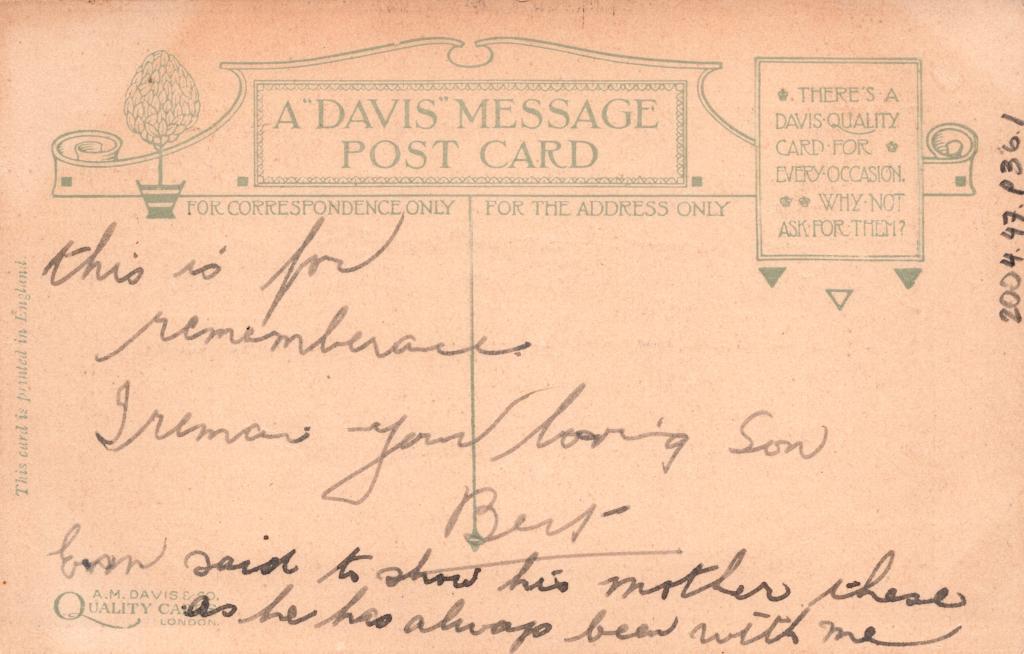 A "DAVIS" MESSAGE
POST CARD
THERE'S A
DAVIS·QUALITY
CARD·FOR
EVERY·OCCASION.
WHY·NOT
ASK·FOR·THEM?
FOR CORRESPONDENCE ONLY
FOR THE ADDRESS ONLY
2004.47.P36.1
This card is printed in England.
this is for
rememberace.
I remain your loving Son
Bert
said to show his mother these
as he has always been with me
A.M. DAVIS & CO.
QUALITY CARDS
LONDON.